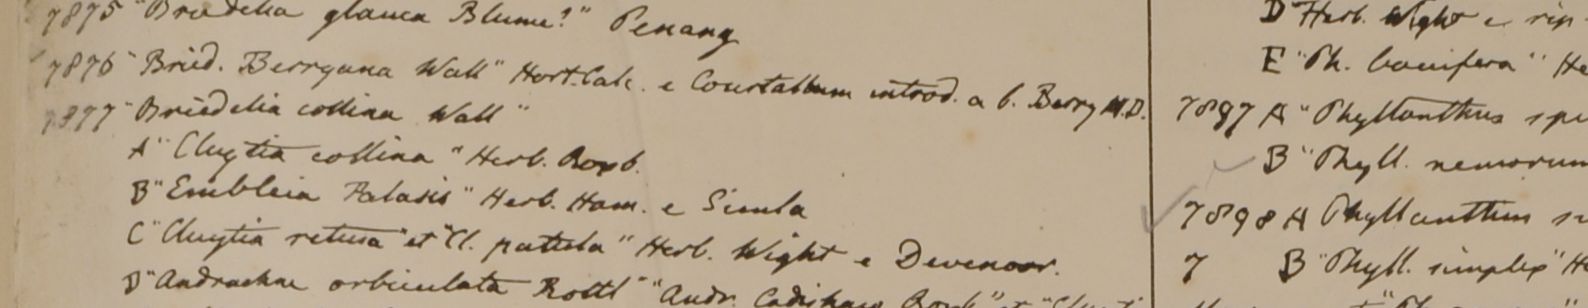 7875 "Briedelia glauca Blume?" Penang
7876 "Bried. Berryana Wall" Hort. Calc. e Courtallum introd. a C. Berry M.D.
7877 "Briedelia collina Wall"
A "Cluytia collina" Herb. Roxb.
B "Embleia Palasis" Herb. Ham. e Simla
C "Cluytia retusa" et "Cl. patula" Herb. Wight e
D "Andrachne orbiculata Rottl" "Andr. Cadishaw Roxb" et
D Herb. Wight e rip
E "Ph. baccifera" He
7897 A "Phyllanthus spe
B "Phyll. nemorum
7898 A Phyllanthus
7 B "Phyll. simplex" H